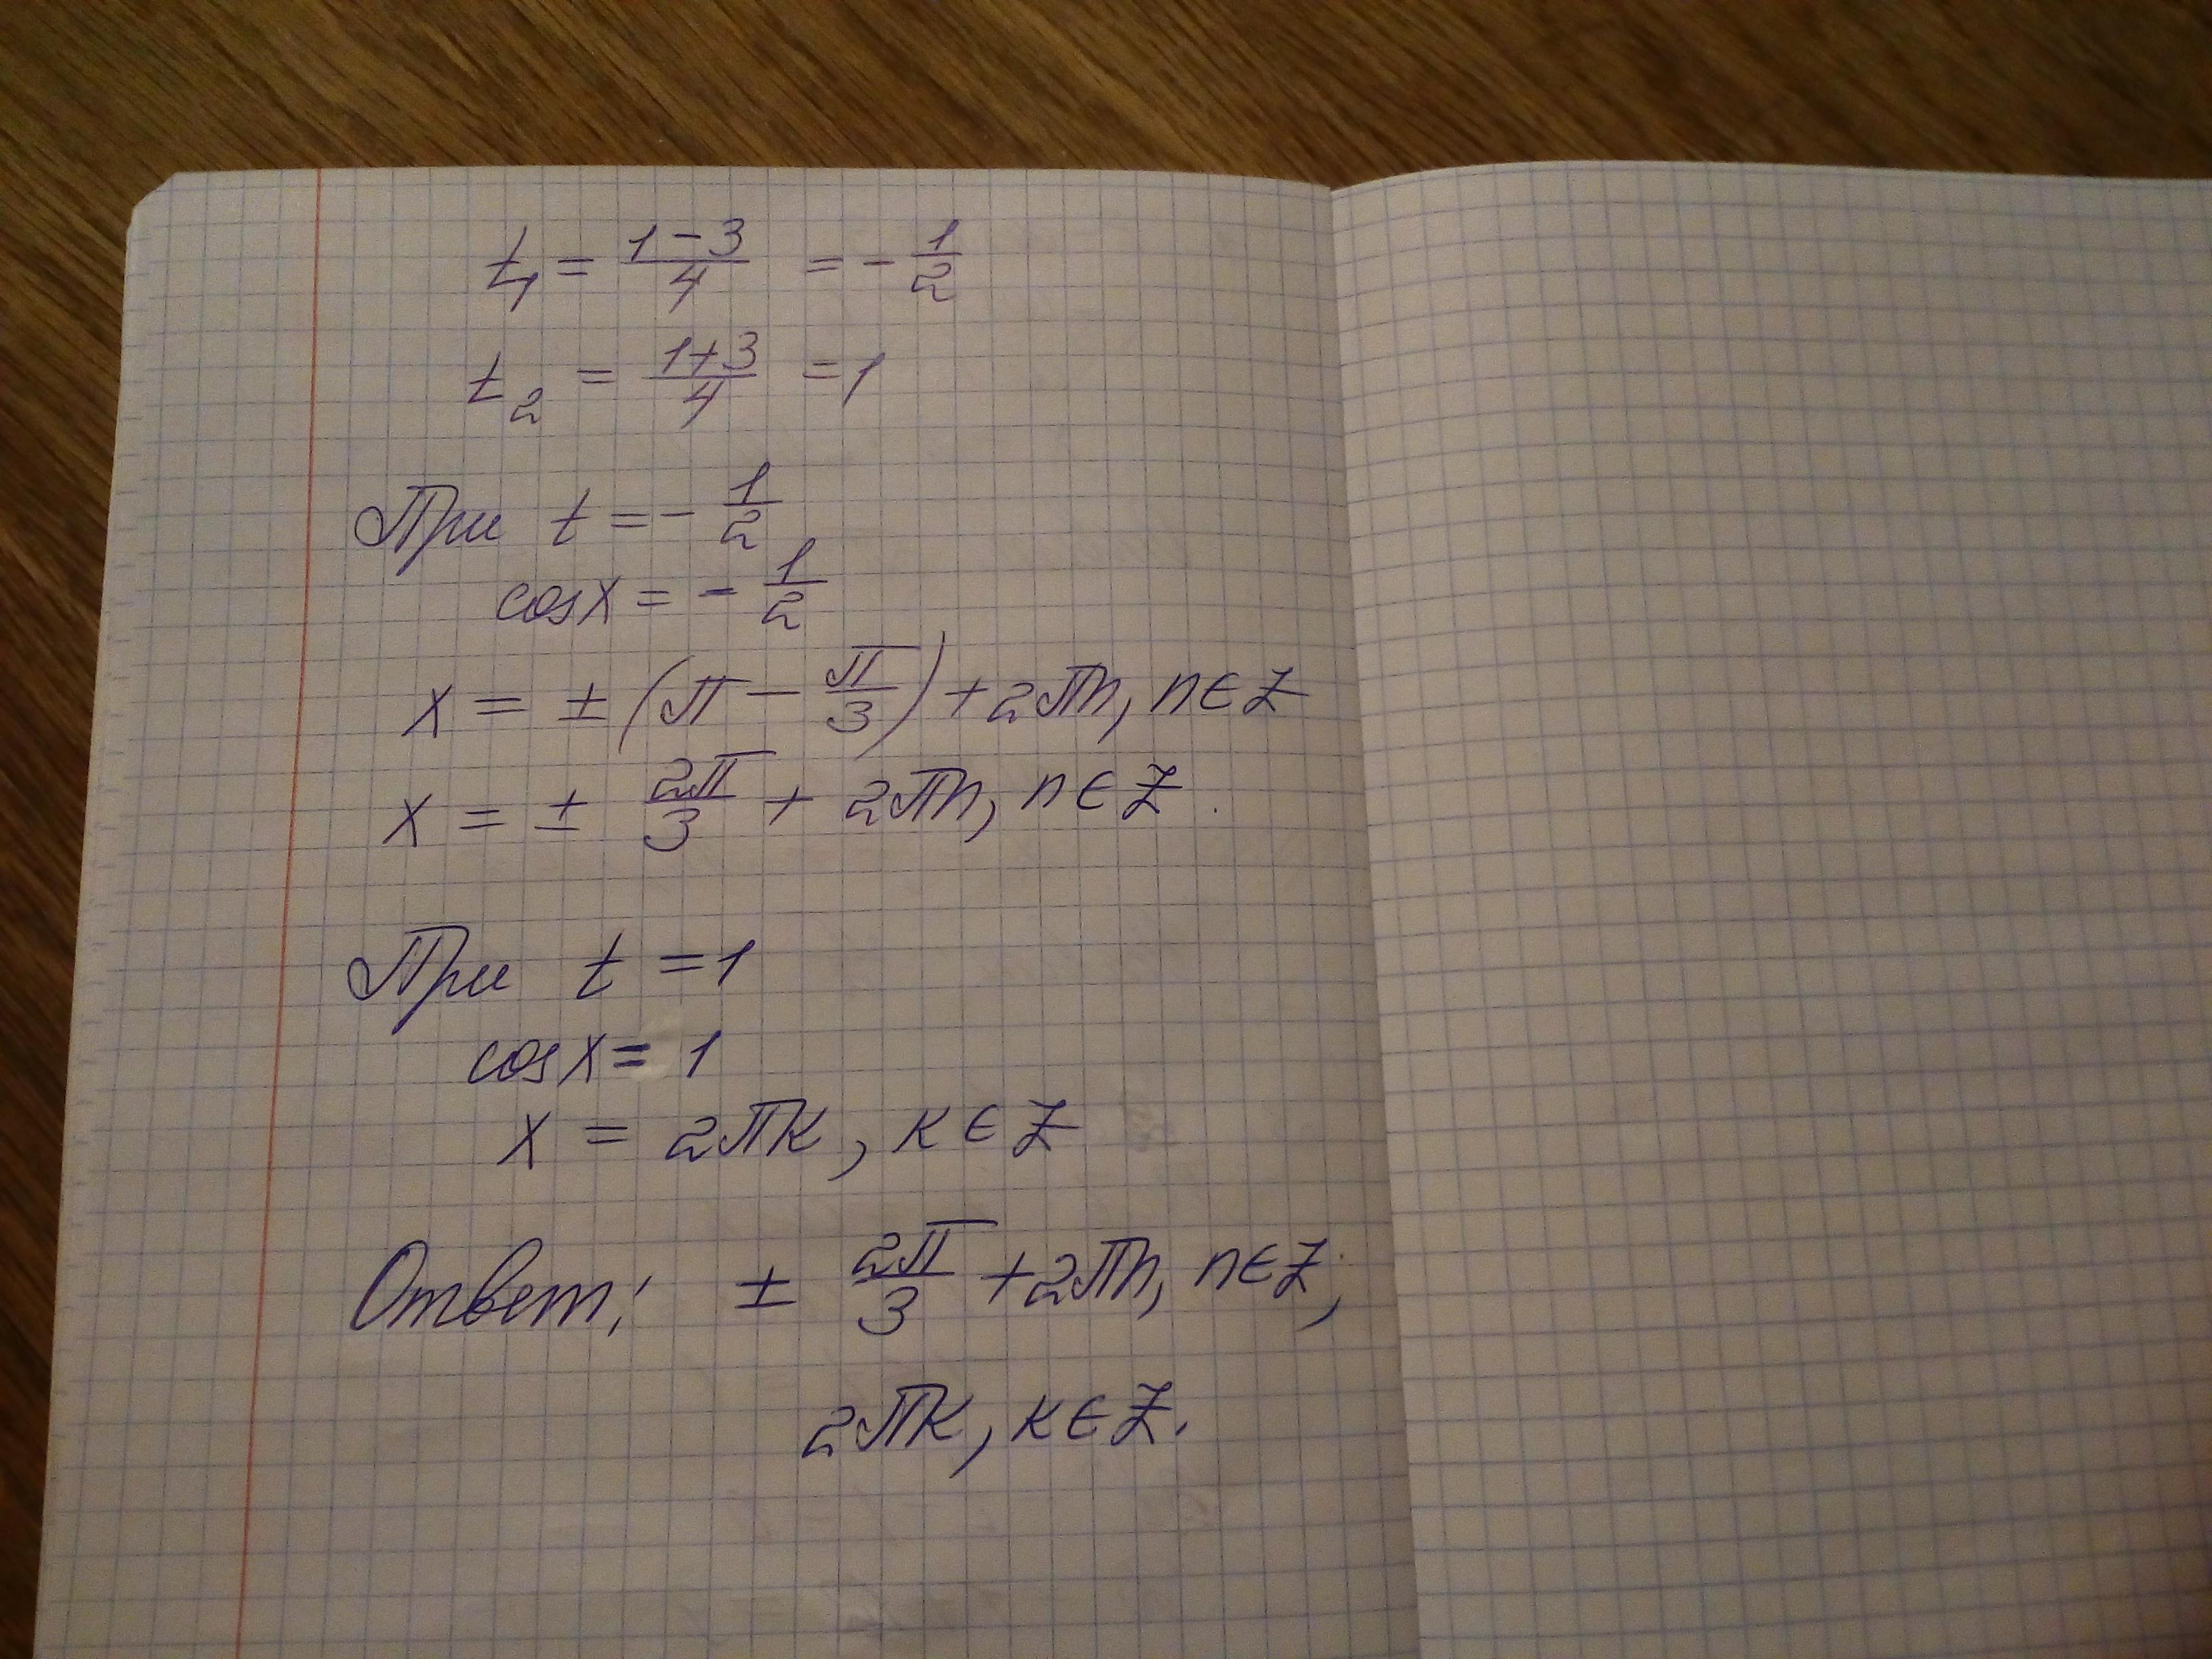 t₁ = (1-3)/4 = -1/2
t₂ = (1+3)/4 = 1
При t = -1/2
cosx = -1/2
x = ±(π - π/3) + 2πn, n∈Z
x = ± 2π/3 + 2πn, n∈Z.
При t = 1
cosx = 1
x = 2πк, к∈Z
Ответ: ± 2π/3 + 2πn, n∈Z;
2πк, к∈Z.